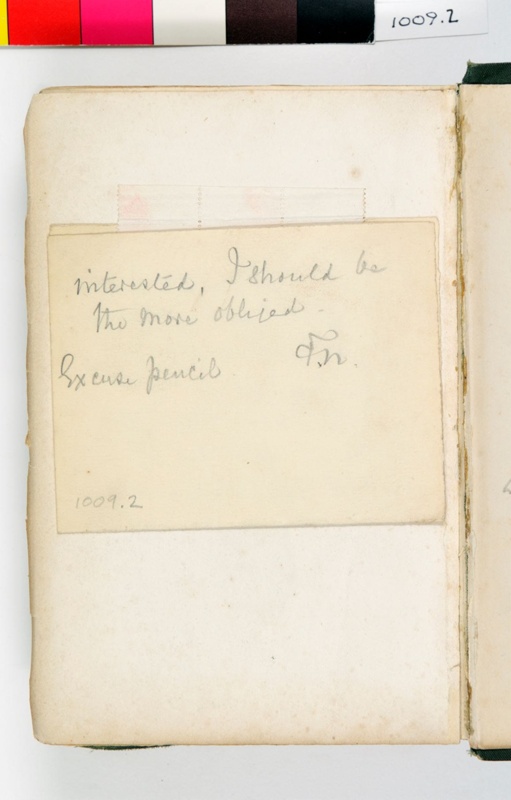 1009.2
interested, I should be
the more obliged.
Excuse pencil. F.N.
1009.2